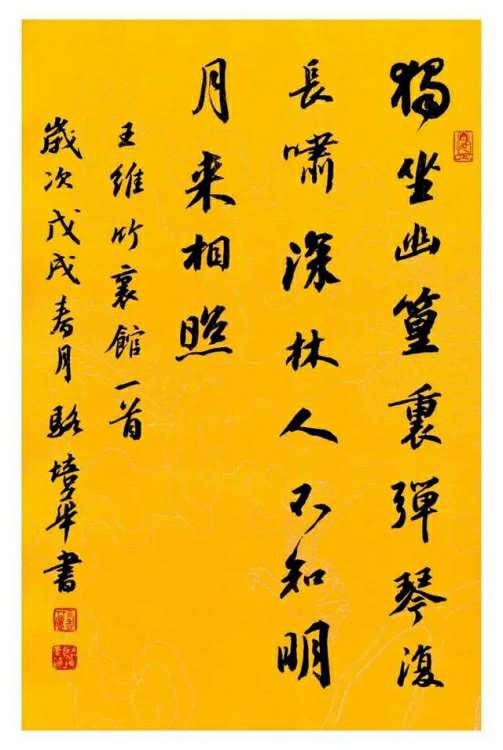 獨坐幽篁裏彈琴復
長嘯深林人不知明
月来相照
王維竹裏館一首
歲次戊戌春月駱培華書